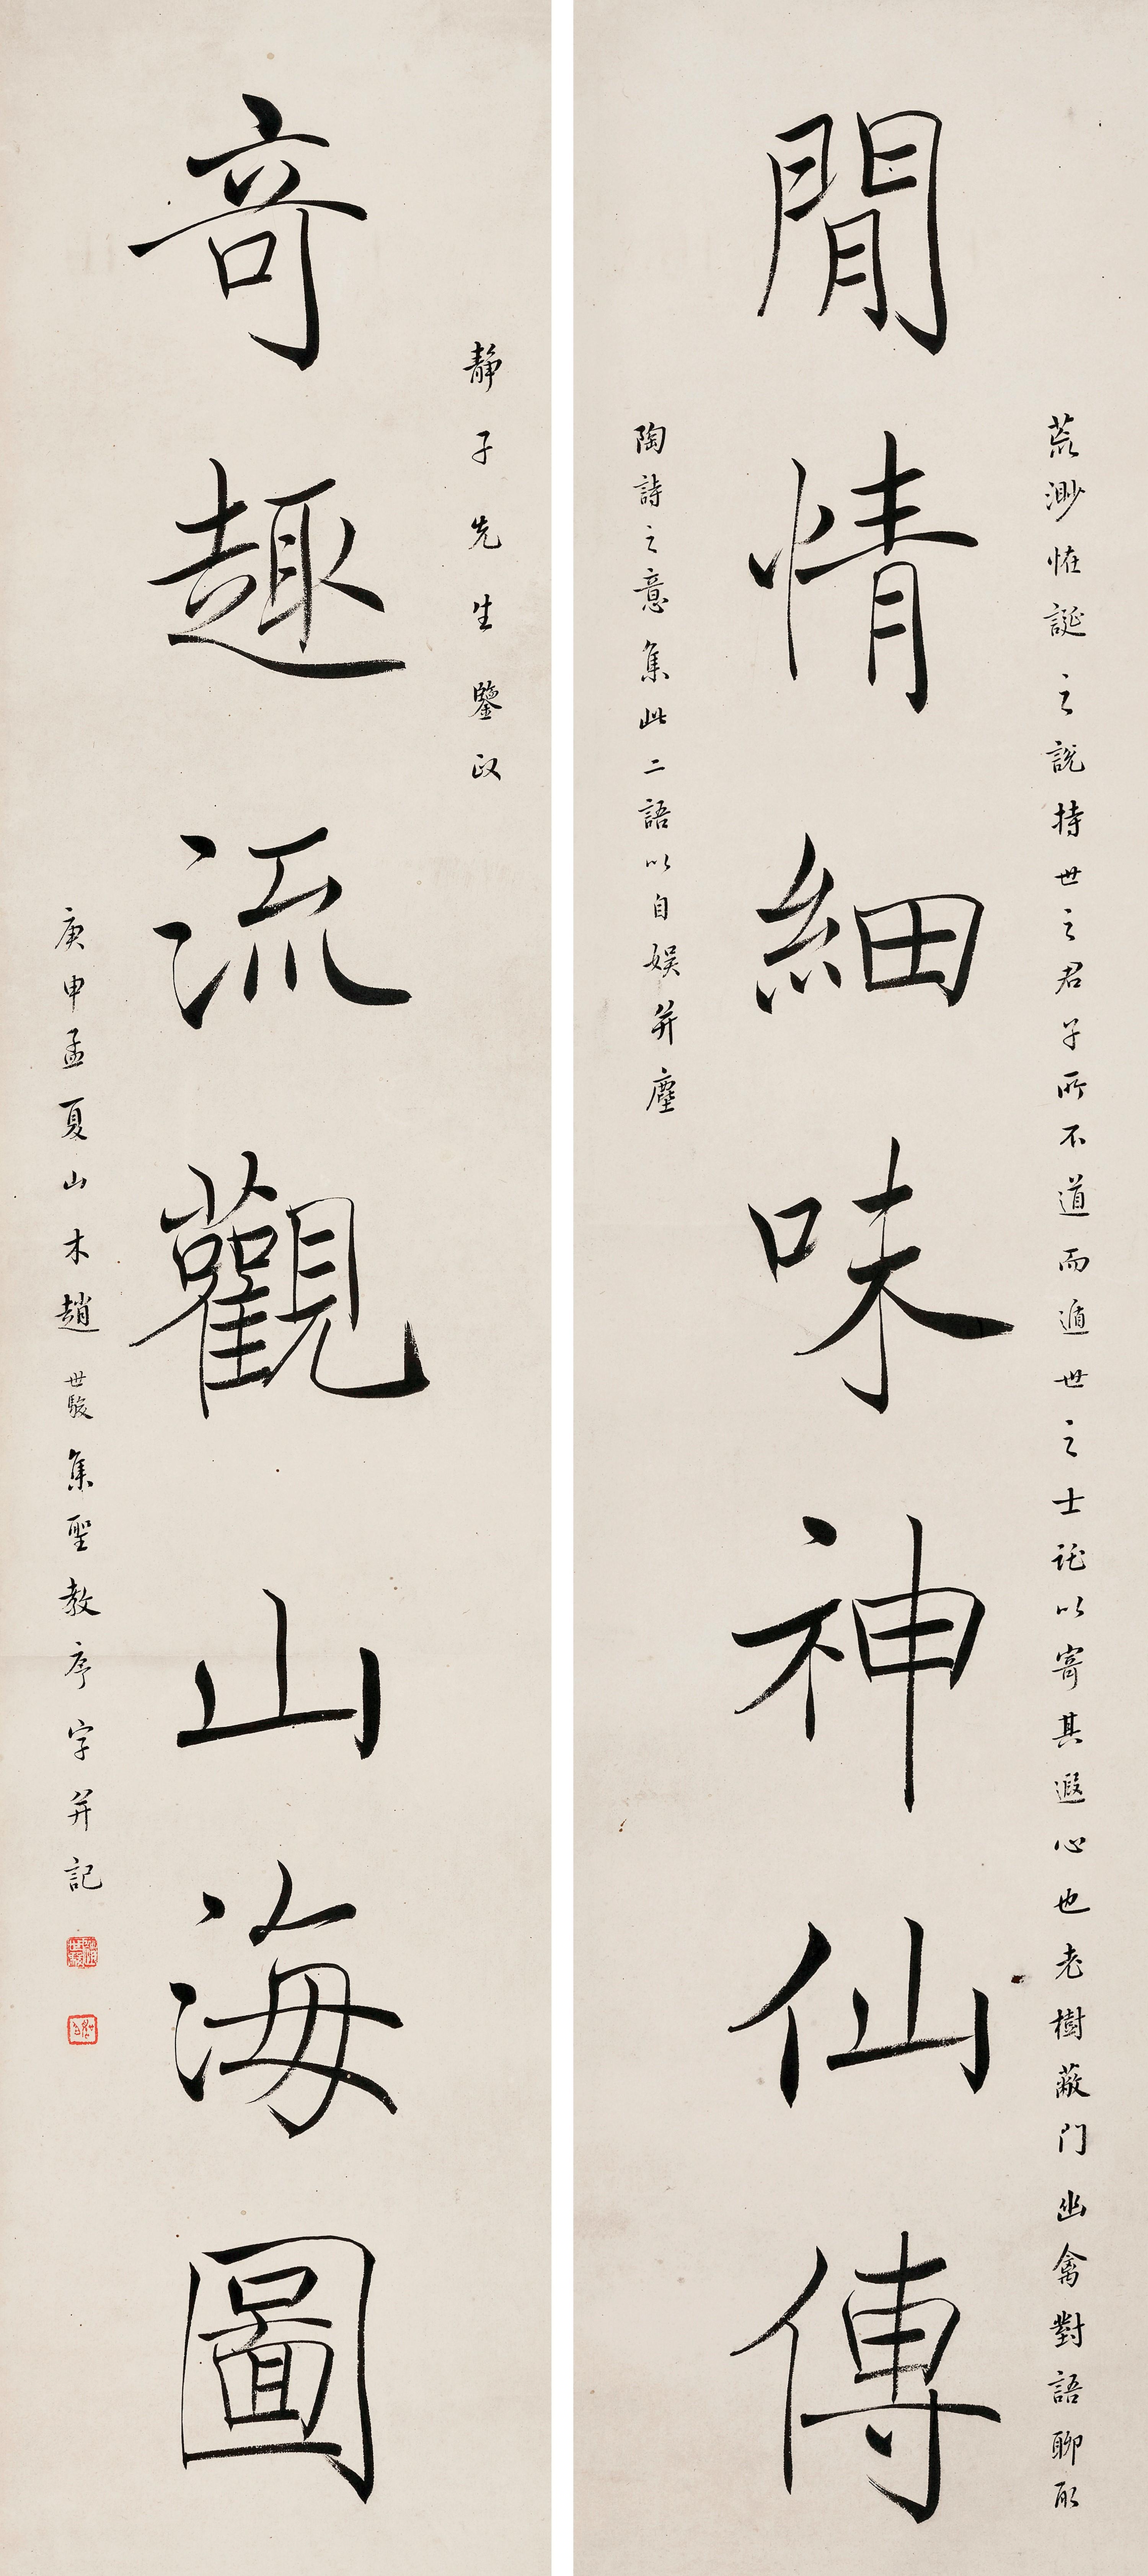 荒渺恠誕之說持世之君子所不道而遁世之士託以寄其遐心也老樹蔽門幽禽對語聊取
閒情細味神仙傳
陶詩之意集此二語以自娛并塵
靜子先生鑒政
奇趣流觀山海圖
庚申孟夏山木趙世駿集聖教序字并記